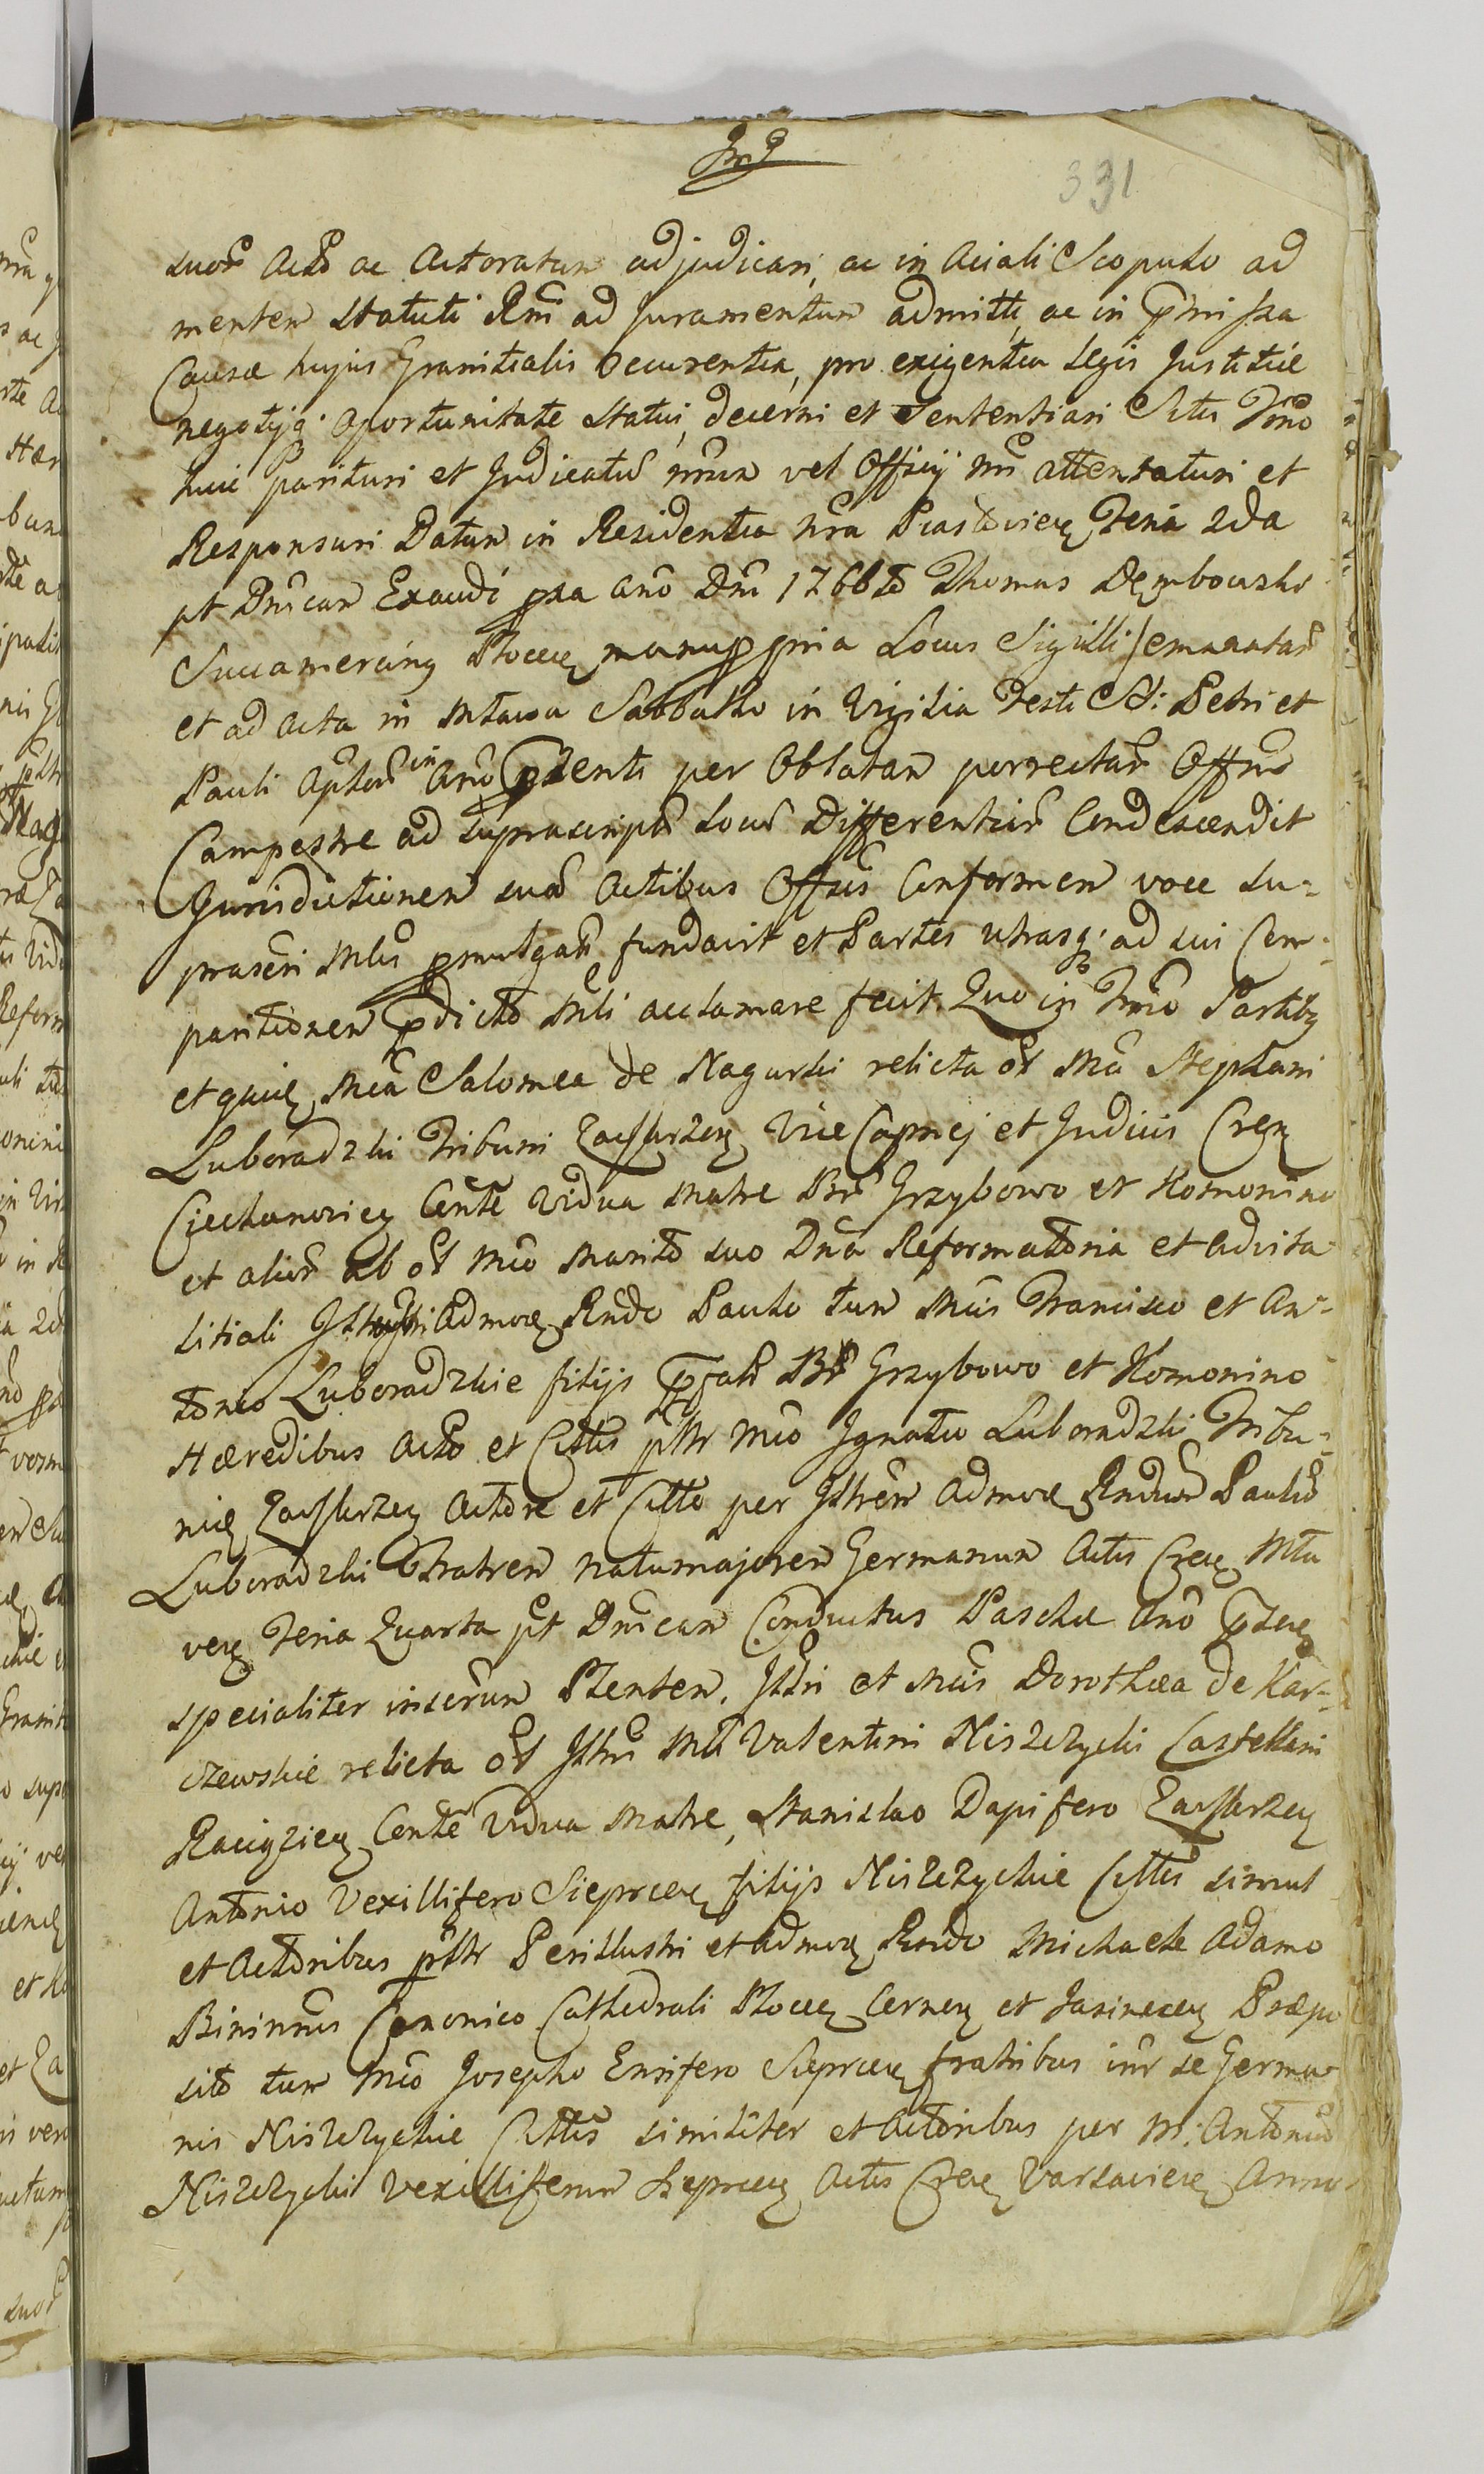 331
suor Acto ac Actoratum adjudicari, ac in Aciali Scopulo ad
mentem Statuti Rni ad Juramentum admitti, ac in pmissa
Causæ hujus Granitialis occurentia, pro exigentia Legis Justitiæ
negotijq. oportunitate Statui, decerni et Sententiari Citus Trno
huic parituri et Judicatum nrum vel Officij nri attentaturi et
Responsuri Datum in Residentia nra Feria 2da
pt Dnicam Exaudi pxa Ano Dni 1766to Thomas Dembowski
Succamerarius Plocen manu ppria Locus Sigilli/ emanatar
et ad Acta in Mlawa Sabbatho in Vigilia Festi SS: Petri et
Pauli Aptor in Ano pzenti per Oblatam porrectar Offm
Campestre ad suprascriptum Locum Differentiar Condescendit
Jurisdictionem suam Actibus Offsis Conformem voce su-
prascri Mlis pmulgata fundavit et Partes utrasq. ad sui Com-
paritionem pdicto Mli acclamare fecit. Quo in Trmo Partibus
et quidem Mca Salomea de Nagurki relicta ol Mci Stephani
Luboradzki Tribuni Zawskrzen Vice Capnej et Judicis Cren
Ciechanovien Conte Vidua Matre Bor Grzybowo et Komonino
et alior ab ol Mco Marito suo Dna Reformatoria et Advita-
litiali Admod Rndo Paulo tum Mcis Francisco et An-
tonio Luboradzkie filijs pfat Bor Grzybowo et Komonino
Hæredibus Acto et Cittis psltr Mco Ignatio Luboradzki Tribu-
nid Zawskrzen Actore et Citto per Illrem Admod Rndum Paulum
Luboradzki Fratrem natumajorem Germanum Actis Cren Mla
ven Feria Quarta pt Dnicam Conductus Paschæ Ano pzen
specialiter inscrum Plenten. Illri et Mcis Dorothea de Kar-
czewskie relicta ol Illris Mci Valentini Niszczycki Castellani
Raciązien Conte Vidua Matre, Stanislao Dapifero Zawskrzen
Antonio Vexillifero Sieprcen filijs Niszczyckie Cittis simul
et Actoribus psltr Perillustri et Admod Rndo Michaele Adamo
Binimis Canonico Cathedrali Plocen Cernen et Jasinecen Præpo
sito tum Mco Josepho Ensifero Sieprcen fratribus intr se Germa-
nis Niszczyckie Cittis similiter et Actoribus per M: Antonium
Niszczycki Vexilliferum Sieprcen Actis Cren Varsavien Anno